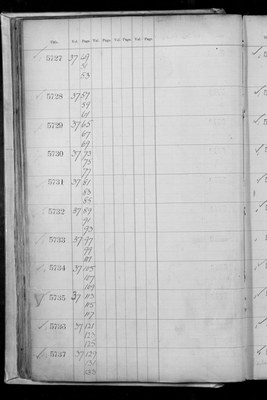 Page. Vol. Page. Vol. Page. Vol. Page. Vol. Page.
5727 37 49
51
53
5728 37 57
59
61
5729 37 65
67
69
5730 37 73
75
77
5731 37 81
83
85
5732 37 89
91
93
5733 37 97
99
101
5734 37 105
107
109
5735 37 113
115
117
5736 37 121
123
125
5737 37 129
131
133